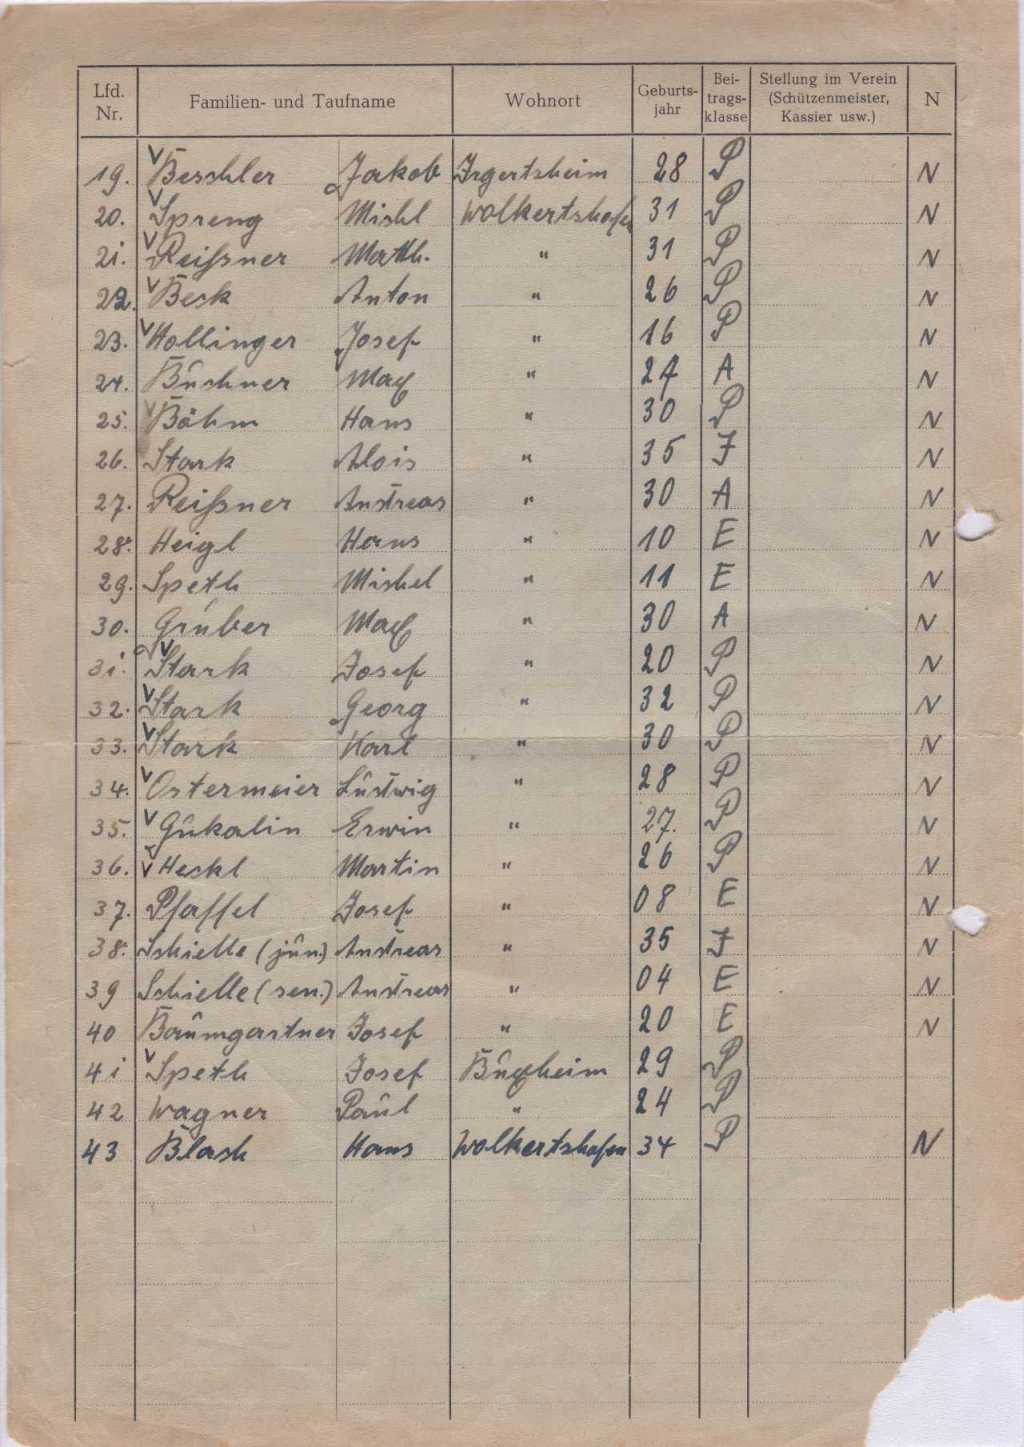 Lfd. Nr. Familien- und Taufname Wohnort Geburts-jahr Bei-trags-klasse Stellung im Verein (Schützenmeister, Kassier usw.) N
19. V Beschler Jakob Irgertsheim 28 P N
20. V Spreng Michl Wolkertshofen 31 P N
21. V Reißner Math. " 31 P N
22. V Beck Anton " 26 P N
23. V Hollinger Josef " 16 P N
24. Büchner Max " 24 A N
25. V Böhm Hans " 30 P N
26. Stark Alois " 35 J N
27. Reißner Andreas " 30 A N
28. Heigl Hans " 10 E N
29. Speth Michel " 11 E N
30. Gruber Max " 30 A N
31. V Stark Josef " 20 P N
32. V Stark Georg " 32 P N
33. V Stark Karl " 30 P N
34. V Ostermeier Ludwig " 28 P N
35. V Gukalin Erwin " 27. P N
36. V Heckl Martin " 26 P N
37. Pfaffel Josef " 08 E N
38. Schielle (jun.) Andreas " 35 J N
39 Schielle (sen.) Andreas " 04 E N
40 Baumgartner Josef " 20 E N
41 V Speth Josef Buxheim 29 P
42 Wagner Paul " 24 P
43 Blasch Hans Wolkertshofen 34 P N